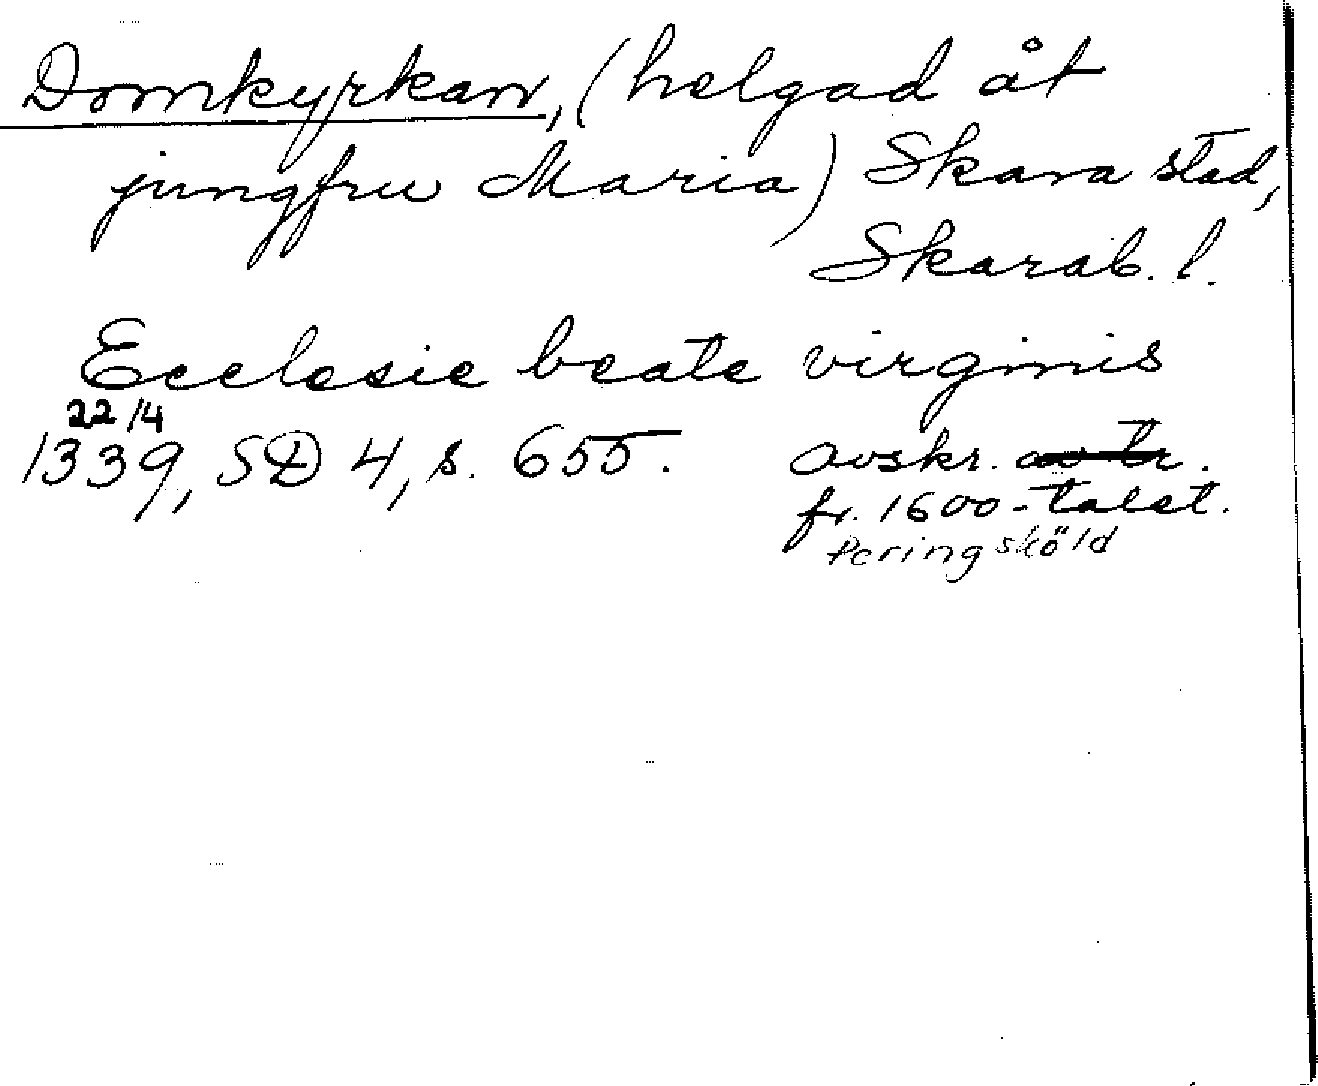 Domkyrkan, (helgad åt
jungfru Maria) Skara stad,
Skarab. l.
Ecclesie beate virginis
22/4
1339, SD 4, s. 655. avskr. av tr.
fr. 1600-talet.
Peringsköld